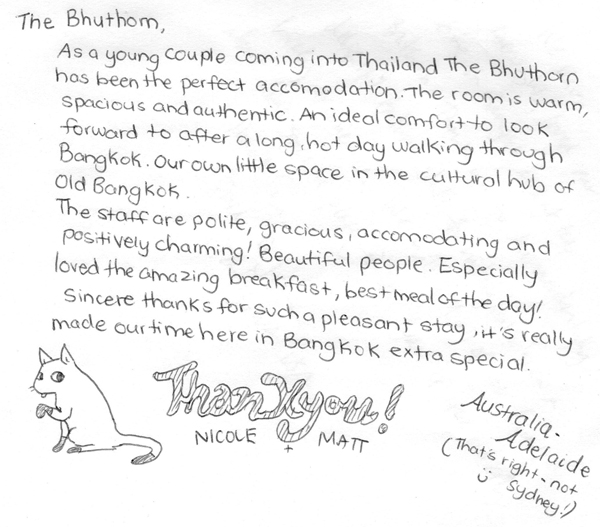 The Bhuthorn,
As a young couple coming into Thailand The Bhuthorn
has been the perfect accomodation. The room is warm,
spacious and authentic. An ideal comfort to look
forward to after a long, hot day walking through
Bangkok. Our own little space in the cultural hub of
Old Bangkok.
The staff are polite, gracious, accomodating and
positively charming! Beautiful people. Especially
loved the amazing breakfast, best meal of the day!
Sincere thanks for such a pleasant stay, it's really
made our time here in Bangkok extra special.
Thank you!
NICOLE + MATT
Australia-
Adelaide
(That's right - not
Sydney!)